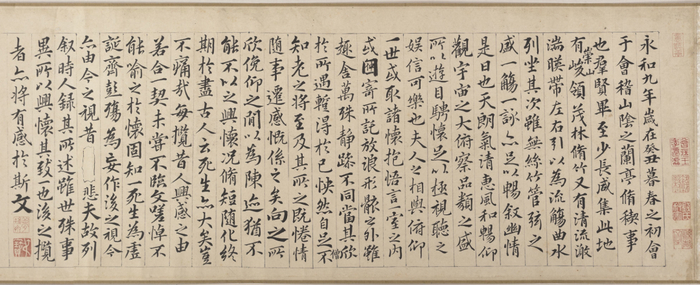 永和九年歲在癸丑暮春之初會
于會稽山陰之蘭亭脩稧事
也羣賢畢至少長咸集此地
有崇山峻領茂林脩竹又有清流激
湍暎帶左右引以為流觴曲水
列坐其次雖無絲竹管弦之
盛一觴一詠亦足以暢敘幽情
是日也天朗氣清惠風和暢仰
觀宇宙之大俯察品類之盛
所以遊目騁懷足以極視聽之
娛信可樂也夫人之相與俯仰
一世或取諸懷抱悟言一室之內
或因寄所託放浪形骸之外雖
趣舍萬殊靜躁不同當其欣
於所遇蹔得於己快然自足不
知老之將至及其所之既惓情
隨事遷感慨係之矣向之所
欣俛仰之閒以為陳迹猶不
能不以之興懷況脩短隨化終
期於盡古人云死生亦大矣豈
不痛哉每攬昔人興感之由
若合一契未嘗不臨文嗟悼不
能喻之於懷固知一死生為虛
誕齊彭殤為妄作後之視今
亦由今之視昔 悲夫故列
敘時人錄其所述雖世殊事
異所以興懷其致一也後之攬
者亦將有感於斯文